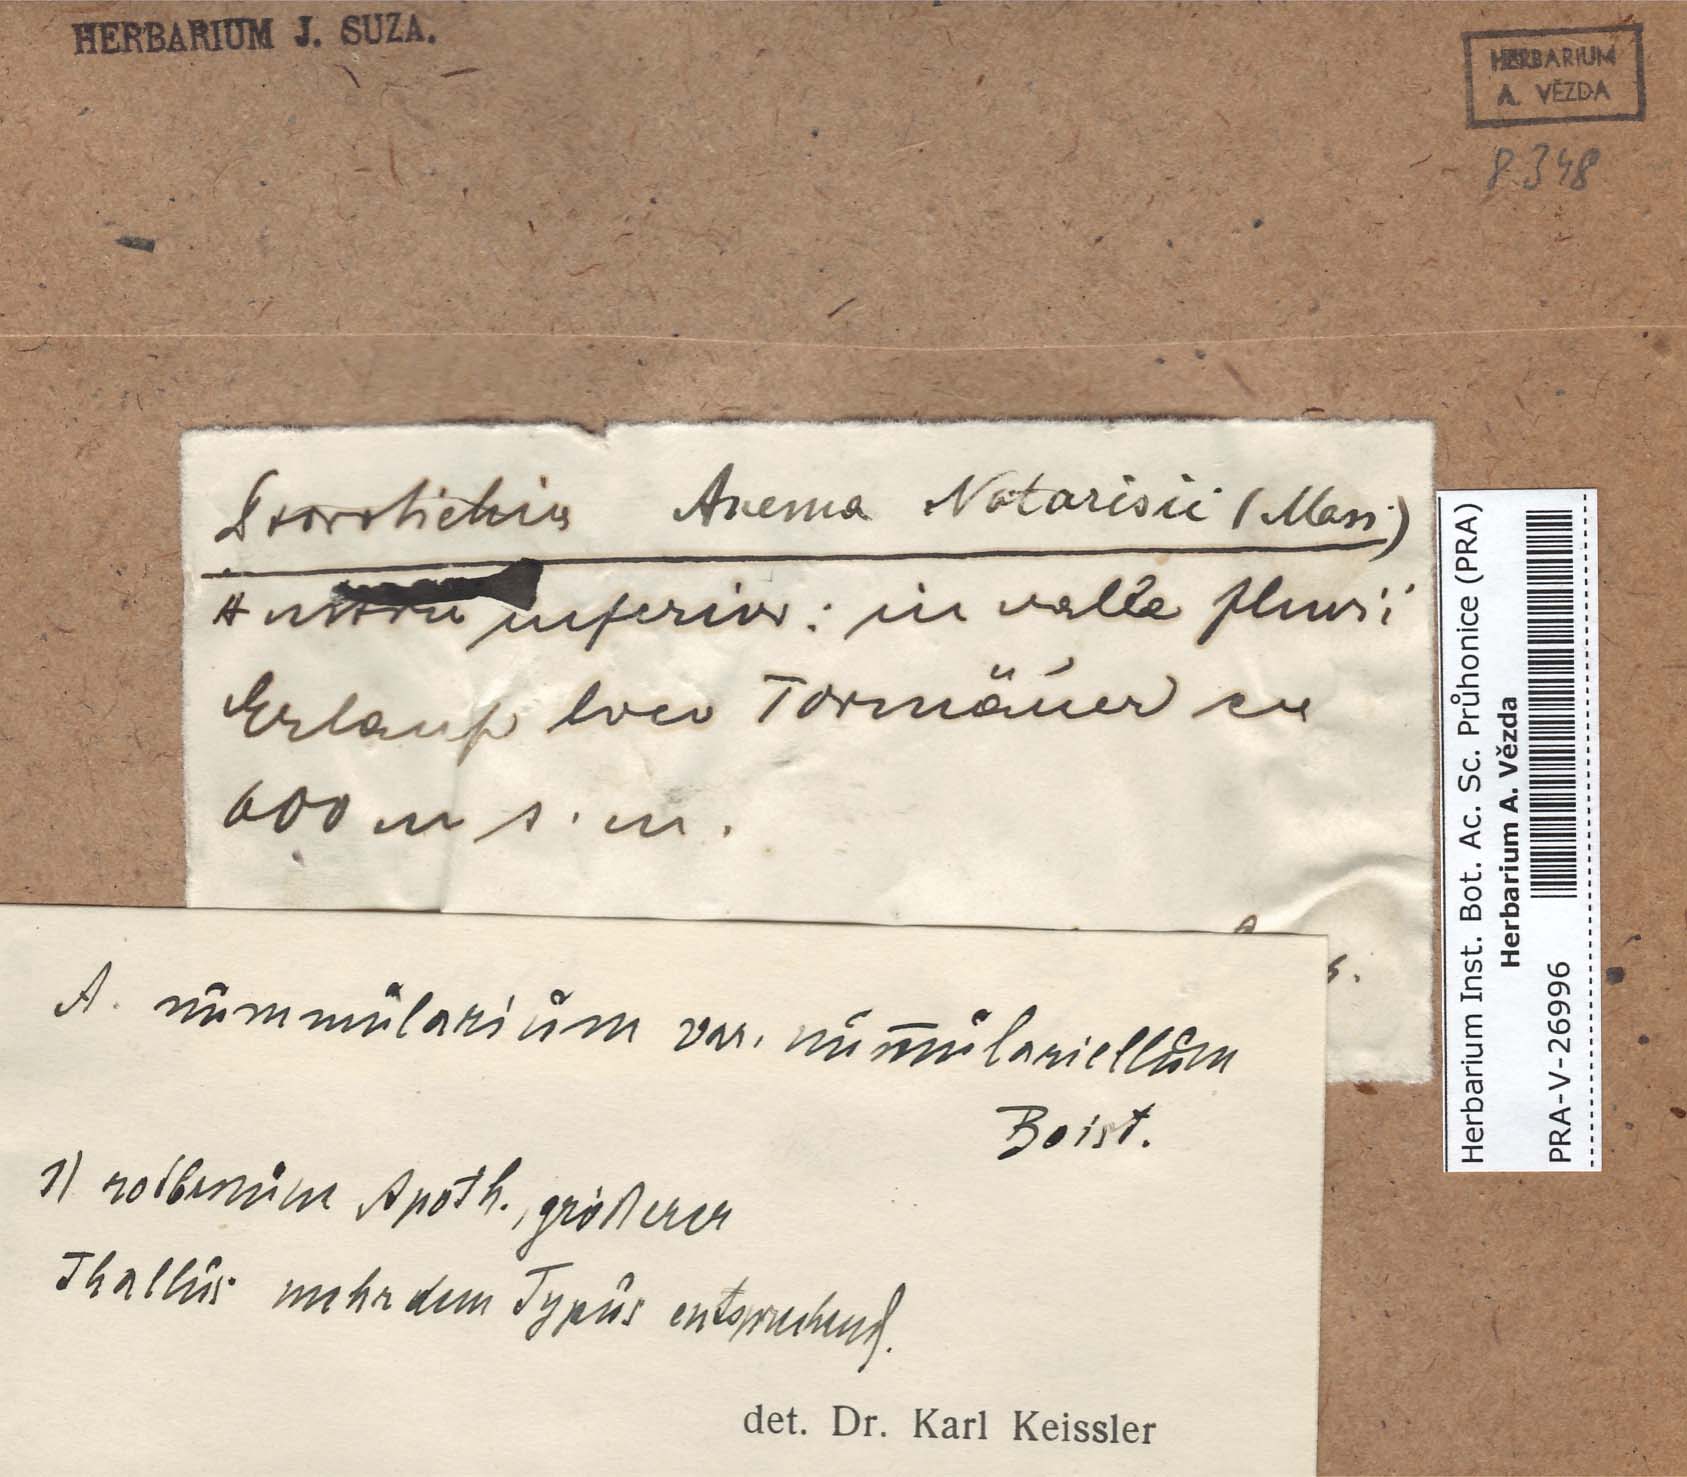 HERBARIUM J. SUZA.
HERBARIUM
A. VĚZDA
8348
Psorotichia Anema Notarisii (Mass.)
Austria inferior: in valle fluvii
Erlauf loco Tormäuer ca
600 m s. m.
s.
A. nummularium var. num̄ulariellum
Boist.
1) rotbraune Apoth., größerer
Thallus mehr dem Typus entsprechend.
det. Dr. Karl Keissler
Herbarium Inst. Bot. Ac. Sc. Průhonice (PRA)
Herbarium A. Vězda
PRA-V-26996